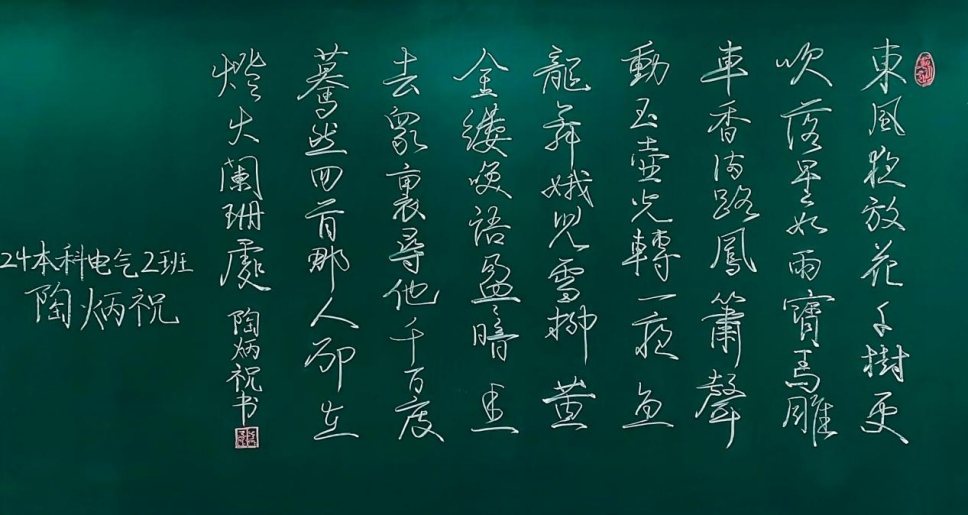 東風夜放花千樹更
吹落星如雨寶馬雕
車香滿路鳳簫聲
動玉壺光轉一夜魚
龍舞娥兒雪柳黃
金縷咲語盈〻暗香
去眾裏尋他千百度
驀然回首那人卻在
燈火闌珊處 陶炳祝书
24本科电气2班
陶炳祝